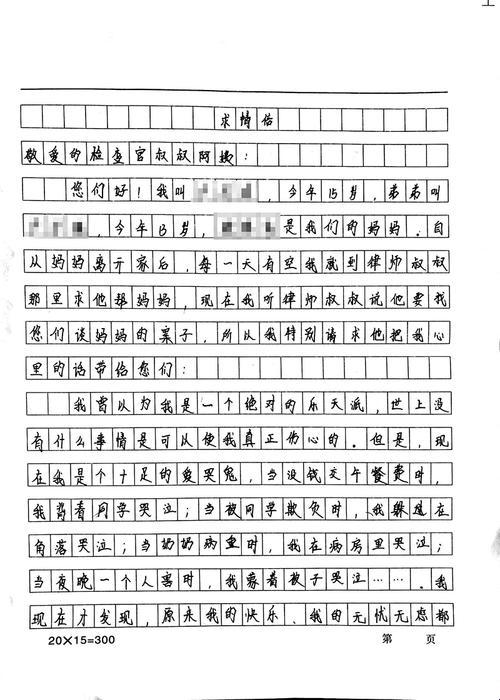 求情信
敬爱的检查官叔叔阿姨:
您们好!我叫,今年15岁,弟弟叫
,今年13岁,是我们的妈妈.自
从妈妈离开家后,每一天有空我就到律师叔叔
那里求他帮妈妈,现在我听律师叔叔说他要找
您们谈妈妈的案子,所以我特别请求他把我心
里的话带给您们:
我曾以为我是一个绝对的乐天派,世上没
有什么事情是可以使我真正伤心的.但是,现
在我是个十足的爱哭鬼,当没钱交午餐费时,
我背着同学哭泣;当被同学欺负时,我躲在
角落哭泣;当奶奶病重时,我在病房里哭泣;
当夜晚一个人害时,我蒙着被子哭泣…….我
现在才发现,原来我的快乐、我的无忧无虑都
20×15=300
第 页